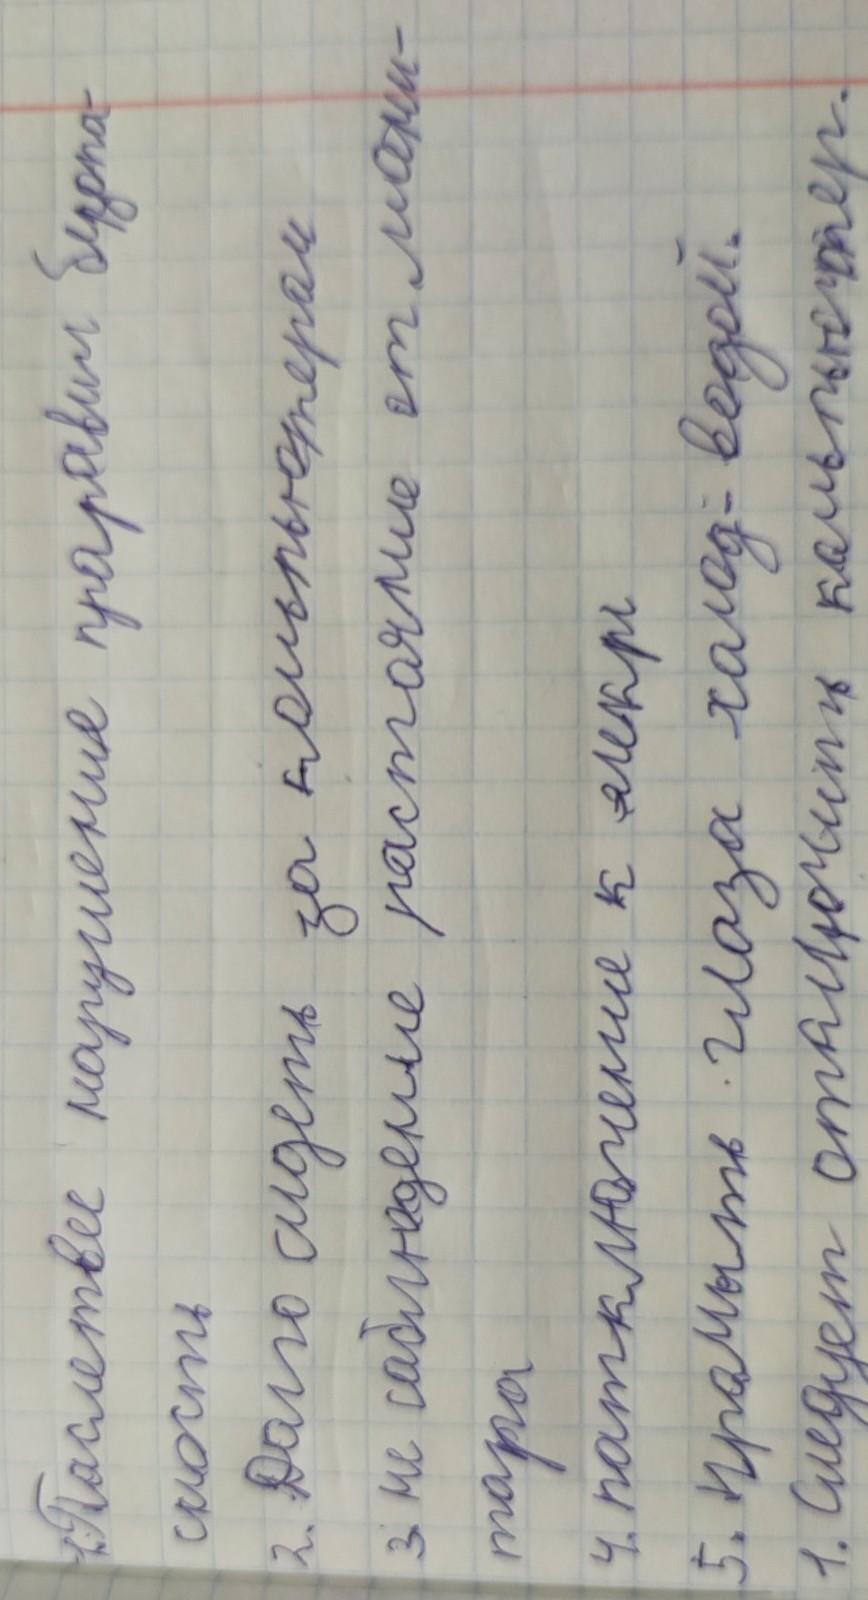 1. Паслетвее нарушение праравил бидопа-
сность
2. Долго сидеть за компьютерам
3. не саблюдение растаяние от мони-
тара
4. патключение к элекр
5. Прамыть глаза халод- водой.
1. Следует отключить компьютер.